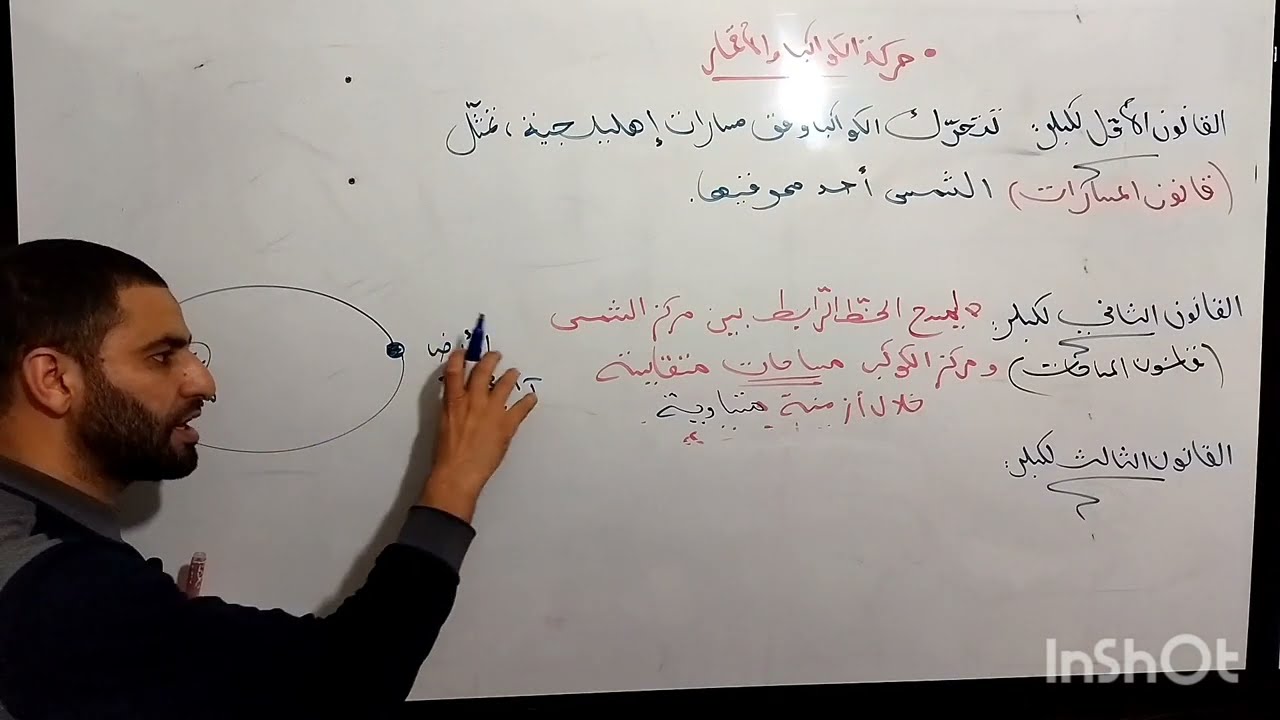 • حركة الكواكب والأقمار
القانون الأول لكبلر: تتحرّك الكواكب وفق مسارات إهليلجية، تمثّل
(قانون المسارات) الشمس أحد محرقيها.
القانون الثاني لكبلر: يمسح الخطّ الرّابط بين مركز الشمس
(قانون المساحات) ومركز الكوكب مساحات متقايسة
خلال أزمنة متساوية.
القانون الثالث لكبلر:
InShOt